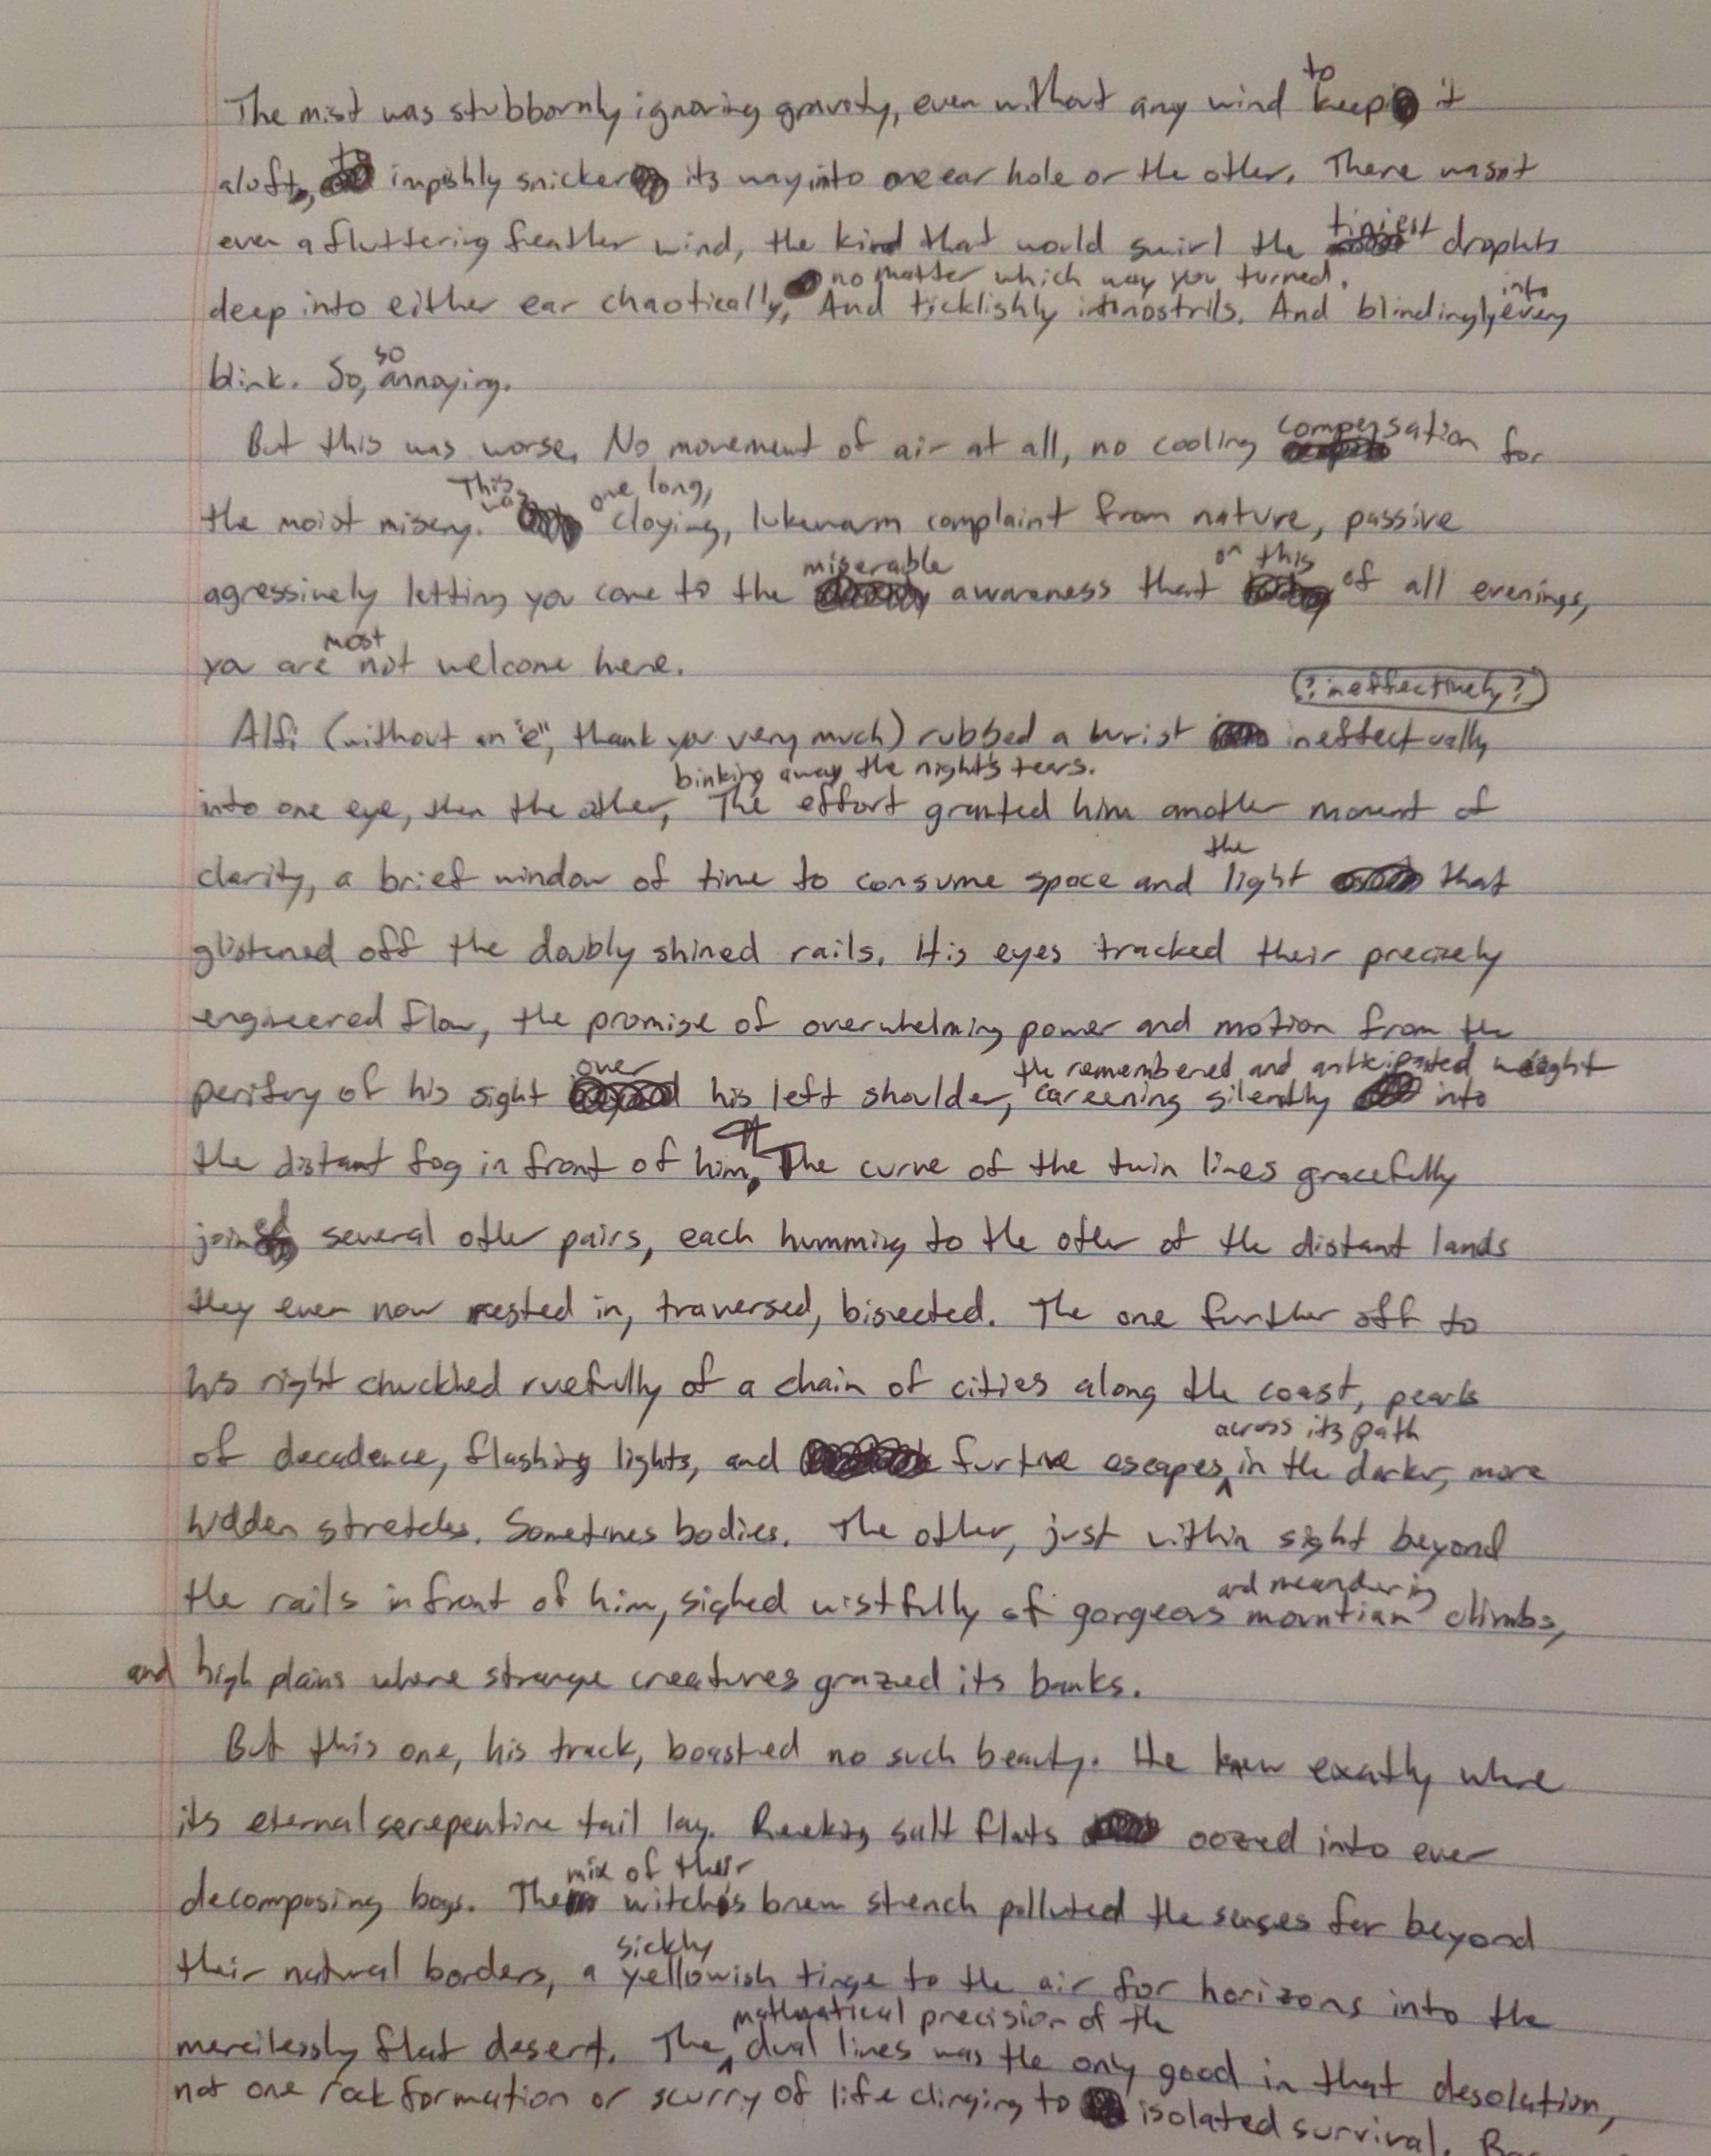 The mist was stubbornly ignoring gravity, even without any wind to keep it
aloft, to impishly snicker its way into one ear hole or the other. There wasn't
even a fluttering feather wind, the kind that would swirl the tiniest droplets
deep into either ear chaotically, no matter which way you turned. And ticklishly into nostrils. And blindingly into every
blink. So, so annoying.
But this was worse. No movement of air at all, no cooling compensation for
the moist misery. This was one long, cloying, lukewarm complaint from nature, passive
agressively letting you come to the miserable awareness that on this of all evenings,
you are most not welcome here.
(?ineffectively?)
Alfi (without an "e", thank you very much) rubbed a wrist ineffectually
into one eye, then the other, binking away the night's tears. The effort granted him another moment of
clarity, a brief window of time to consume space and the light that
glistened off the doubly shined rails. His eyes tracked their precisely
engineered flow, the promise of overwhelming power and motion from the
perifery of his sight over his left shoulder, the remembered and anticipated weight careening silently into
the distant fog in front of him. The curve of the twin lines gracefully
joined several other pairs, each humming to the other of the distant lands
they even now rested in, traversed, bisected. The one further off to
his right chuckled ruefully of a chain of cities along the coast, pearls
of decadence, flashing lights, and furtive escapes across its path in the darker, more
hidden stretches. Sometimes bodies. The other, just within sight beyond
the rails in front of him, sighed wistfully of gorgeous and meandering mountian climbs,
and high plains where strange creatures grazed its banks.
But this one, his track, boasted no such beauty. He knew exatly where
its eternal serepentine tail lay. Reeking salt flats oozed into ever
decomposing bogs. The mix of their witch's brew strench polluted the senses far beyond
their natural borders, a sickly yellowish tinge to the air for horizons into the
mercilessly flat desert. The mathmatical precision of the dual lines was the only good in that desolation,
not one rock formation or scurry of life clinging to isolated survival.